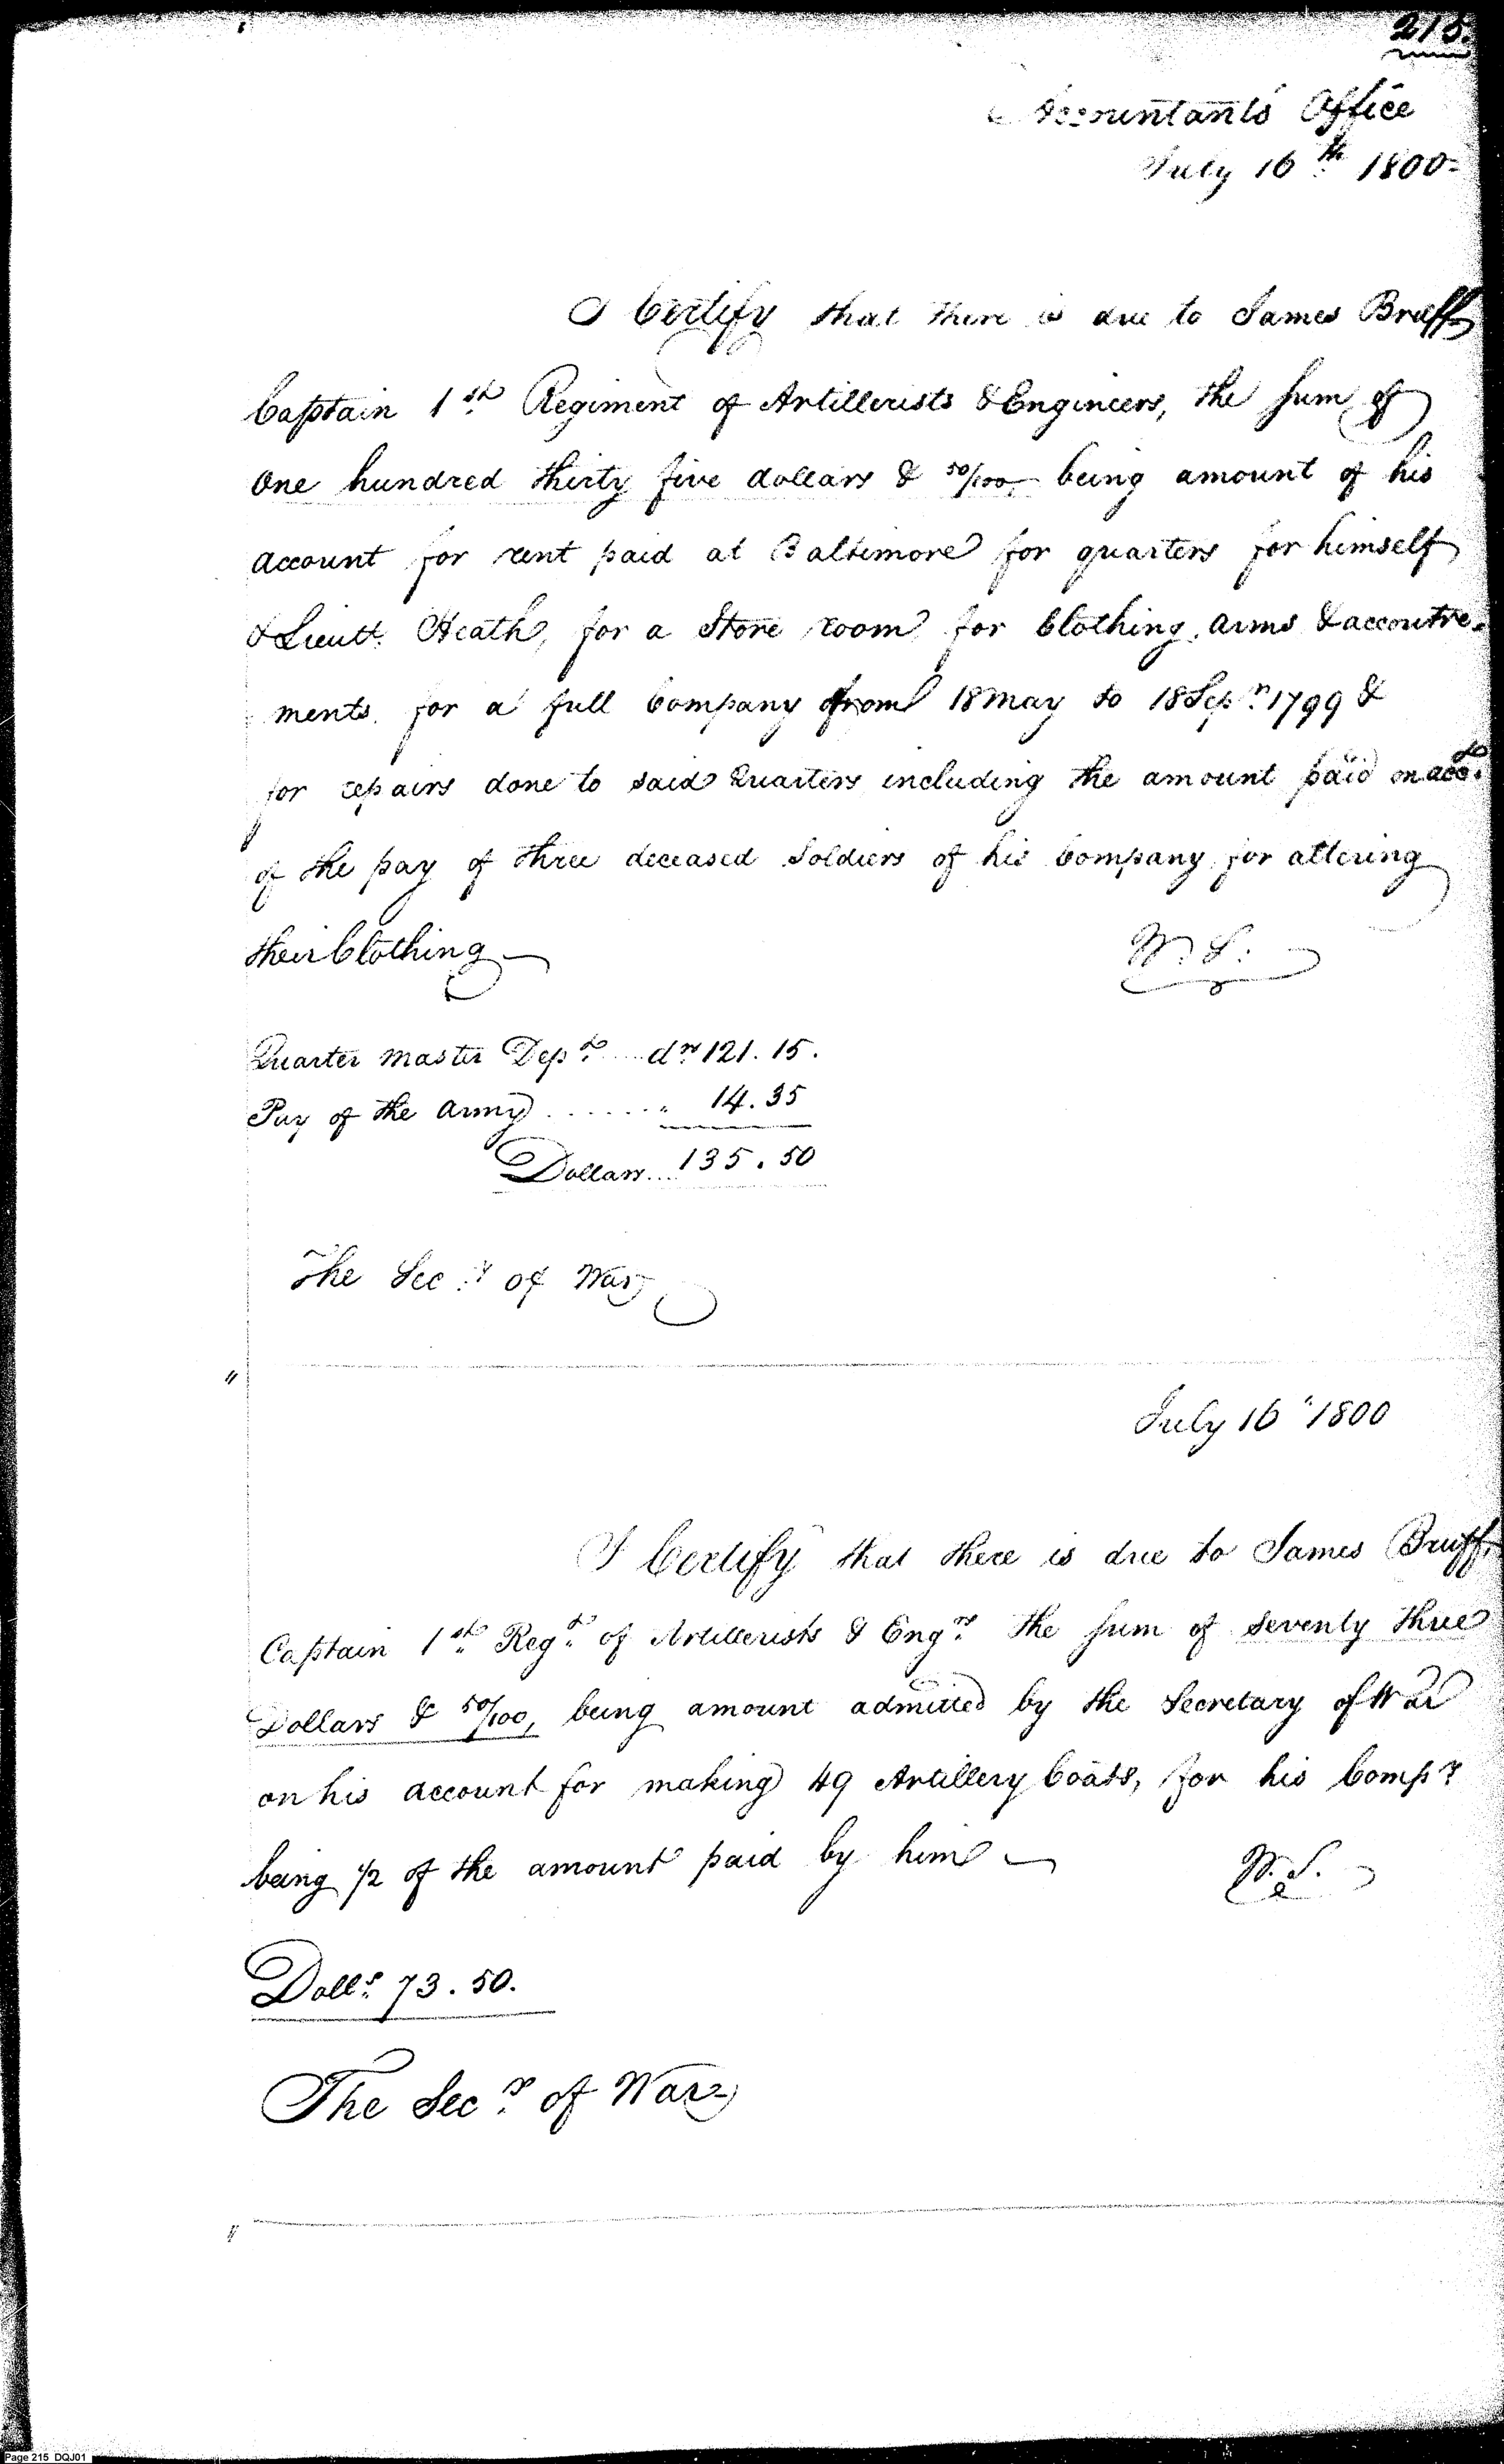 215.
Accountants Office
July 16th 1800
I Certify that there is due to James Bruff
Captain 1st Regiment of Artillerists & Engineers, the sum of
One hundred thirty five dollars & 50/100, being amount of his
account for rent paid at Baltimore for quarters for himself
& Lieutt. Heath, for a Store room for Clothing, arms & accoutre-
ments for a full Company from 18 May to 18 Sepr. 1799 &
for repairs done to said Quarters including the amount paid on acco.
of the pay of three deceased Soldiers of his Company for altering
their Clothing
W. S.
Quarter Master Dept. .... drs 121. 15.
Pay of the Army ....... " 14. 35
Dollars.... 135. 50
The Secy. of War
" July 16 " 1800
I Certify that there is due to James Bruff
Captain 1st Regt. of Artillerists & Engrs. the sum of seventy three
Dollars & 50/100, being amount admitted by the Secretary of War
on his account for making 49 Artillery Coats, for his Compy.
being 1/2 of the amount paid by him
W. S.
Dolls. 73. 50.
The Secy. of War
"
Page 215 DQJ01